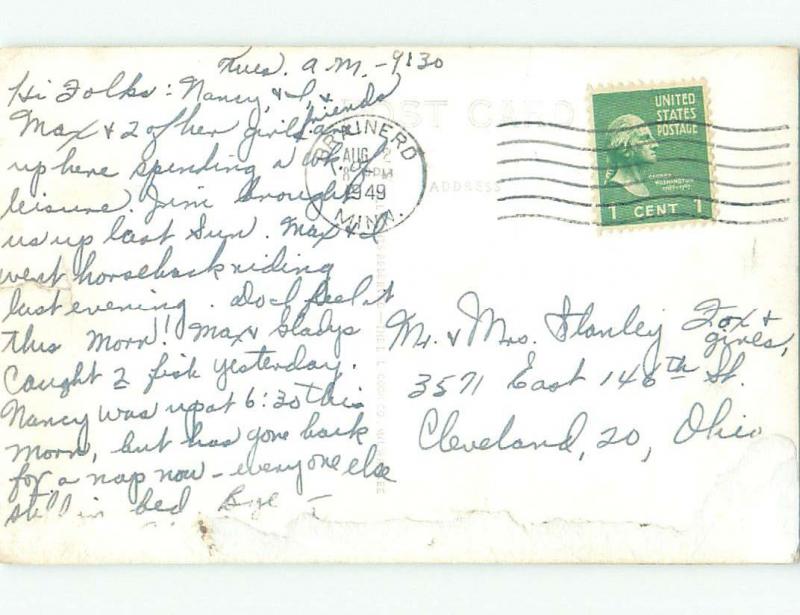 Tues. A.M. - 9:30
Hi Folks: Nancy, & I, &
Max & 2 of her girl friends are
up here spending a wk of
leisure. Jim brought
us up last Sun. Max & I
went horseback riding
last evening. Do I feel it
this Morn! Max & Gladys
Caught 2 fish yesterday.
Nancy was up at 6:30 this
morn, but has gone back
for a nap now - everyone else
still in bed Bye
POST CARD
ADDRESS
BRAINERD
AUG 2
PM
1949
MINN.
UNITED
STATES
POSTAGE
GEORGE
WASHINGTON
1 CENT 1
Mr. & Mrs. Stanley Fox &
girls,
3571 East 146th St.
Cleveland, 20, Ohio